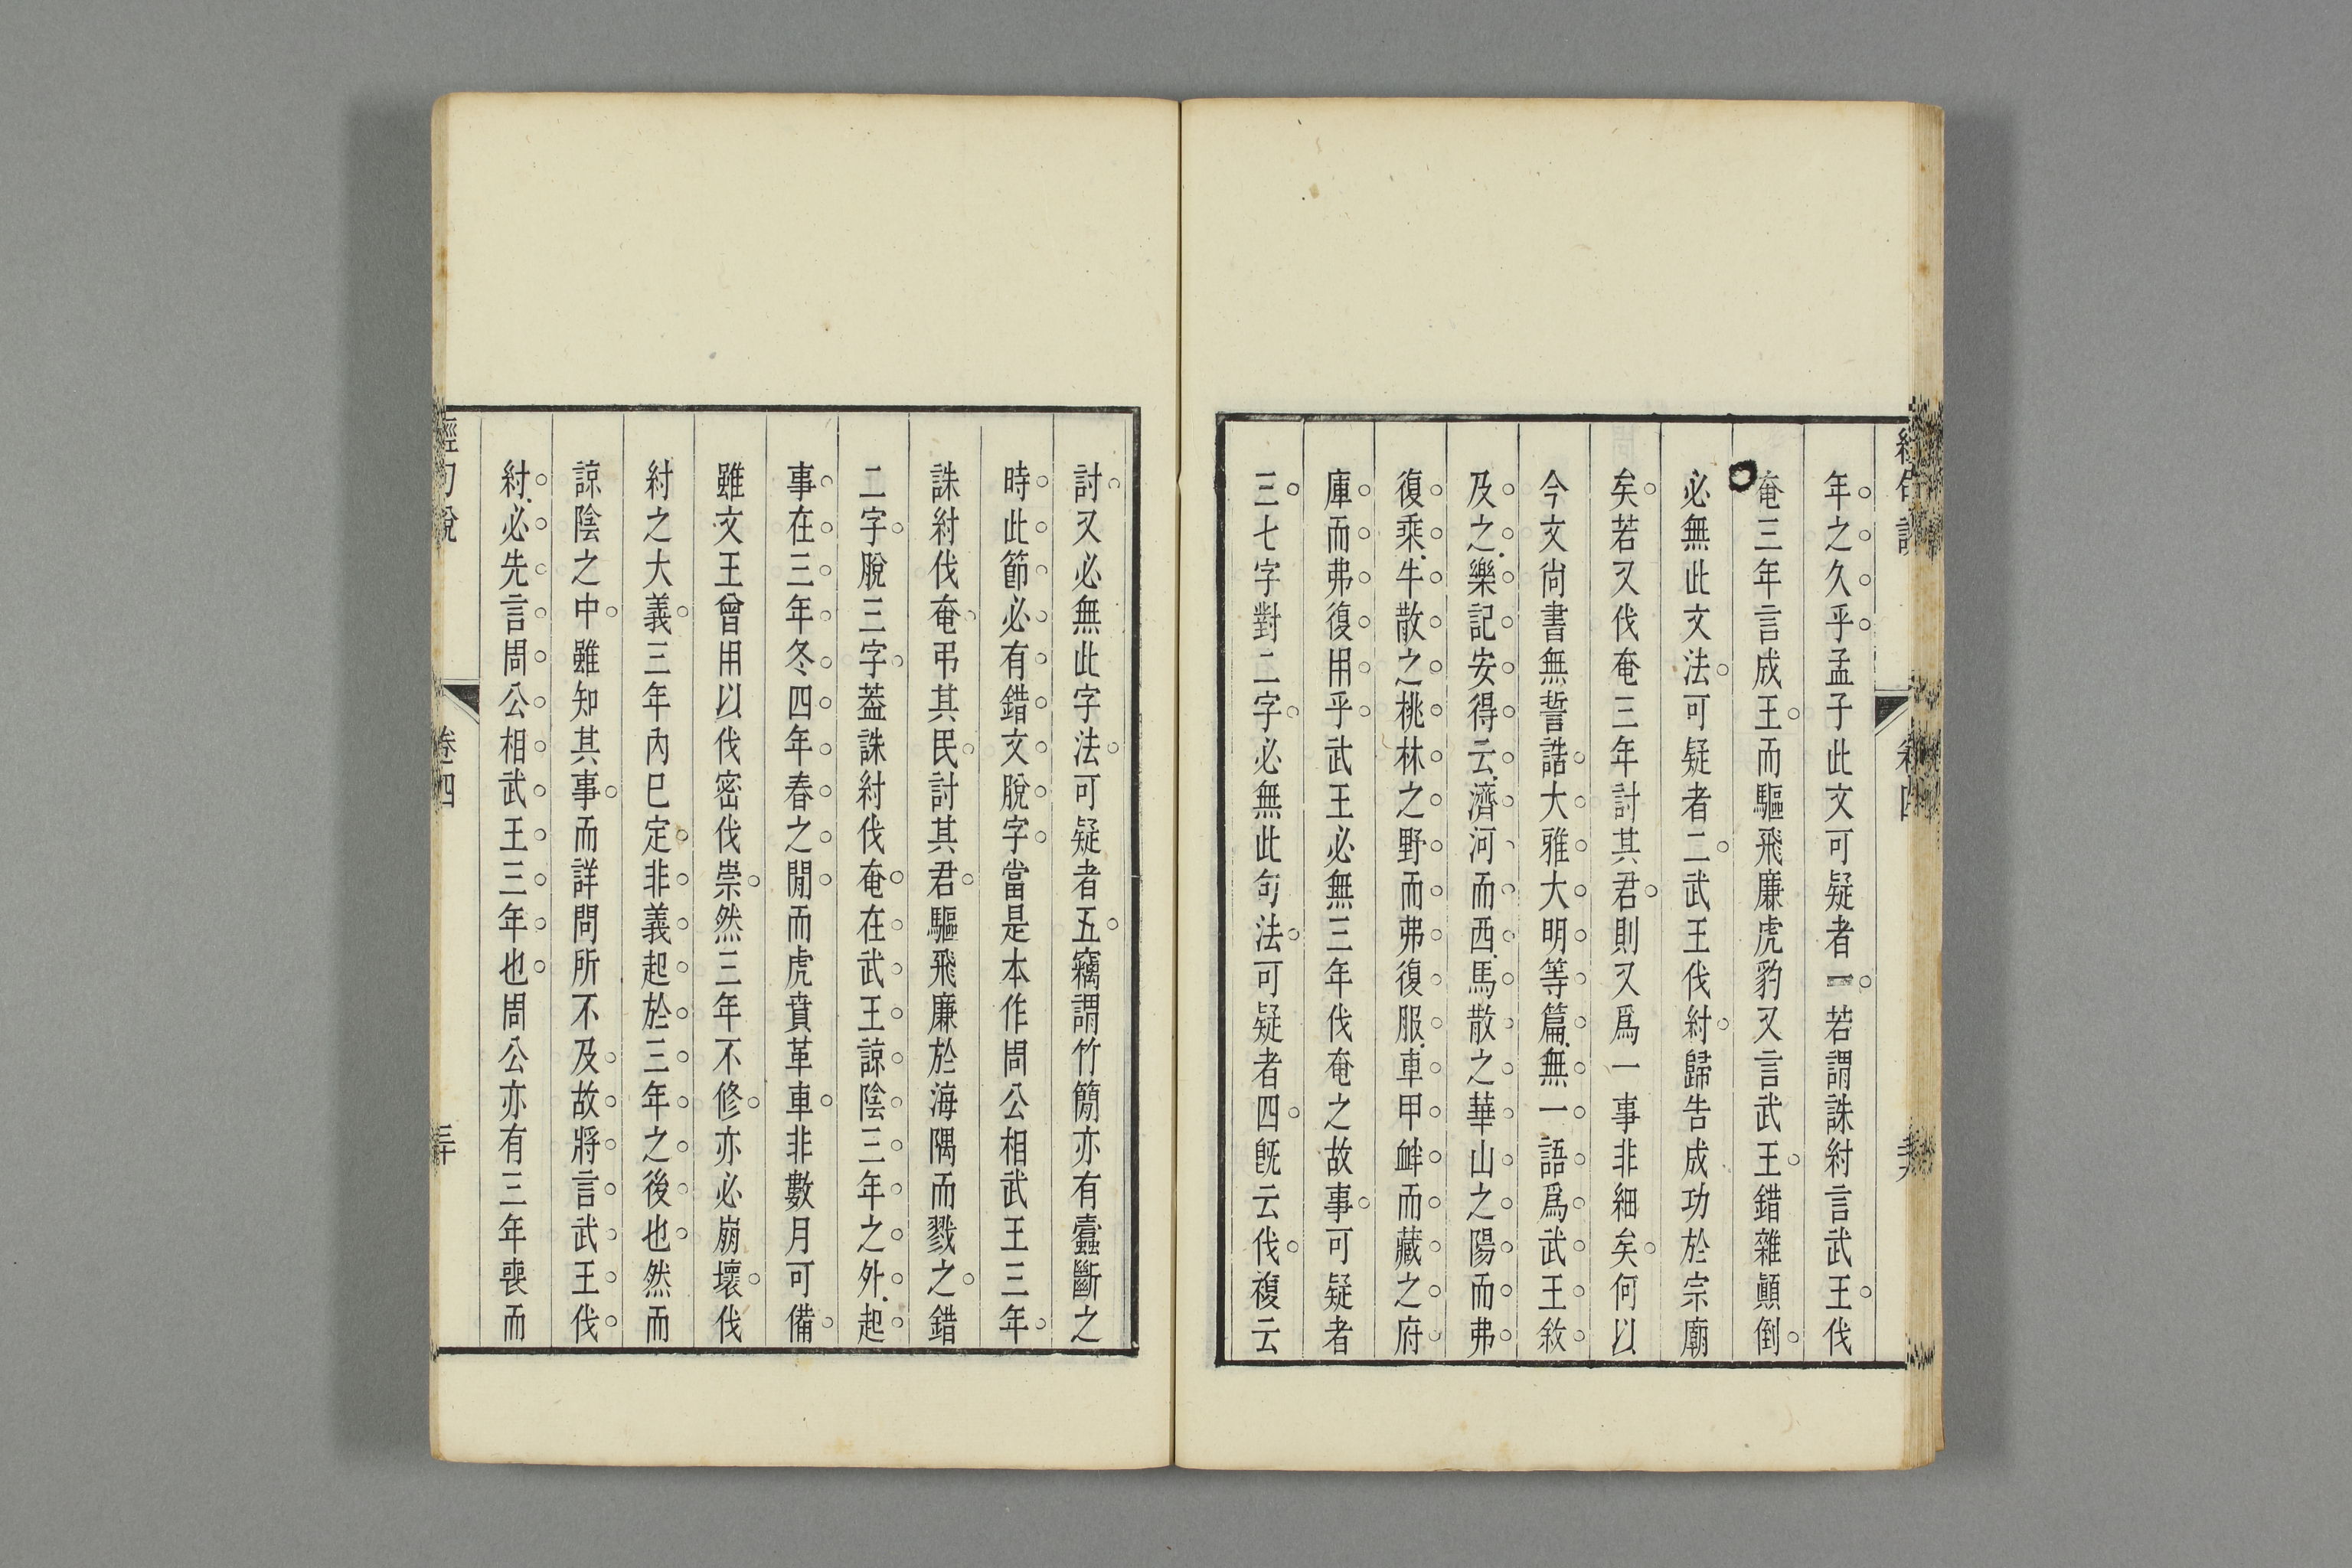 年之久乎孟子此文可疑者一若謂誅紂言武王伐
奄三年言成王而驅飛廉虎豹又言武王錯雜顚倒
必無此文法可疑者二武王伐紂歸告成功於宗廟
矣若又伐奄三年討其君則又爲一事非細矣何以
今文尙書無誓誥大雅大明等篇無一語爲武王敘
及之樂記安得云濟河而西馬散之華山之陽而弗
復乘牛散之桃林之野而弗復服車甲衅而藏之府
庫而弗復用乎武王必無三年伐奄之故事可疑者
三七字對二字必無此句法可疑者四旣云伐複云
討又必無此字法可疑者五竊謂竹簡亦有蠹斷之
時此節必有錯文脫字當是本作周公相武王三年
誅紂伐奄弔其民討其君驅飛廉於海隅而戮之錯
二字脫三字葢誅紂伐奄在武王諒陰三年之外起
事在三年冬四年春之閒而虎賁革車非數月可備
雖文王曾用以伐密伐崇然三年不修亦必崩壞伐
紂之大義三年內已定非義起於三年之後也然而
諒陰之中雖知其事而詳問所不及故將言武王伐
紂必先言周公相武王三年也周公亦有三年喪而
經句說 卷四